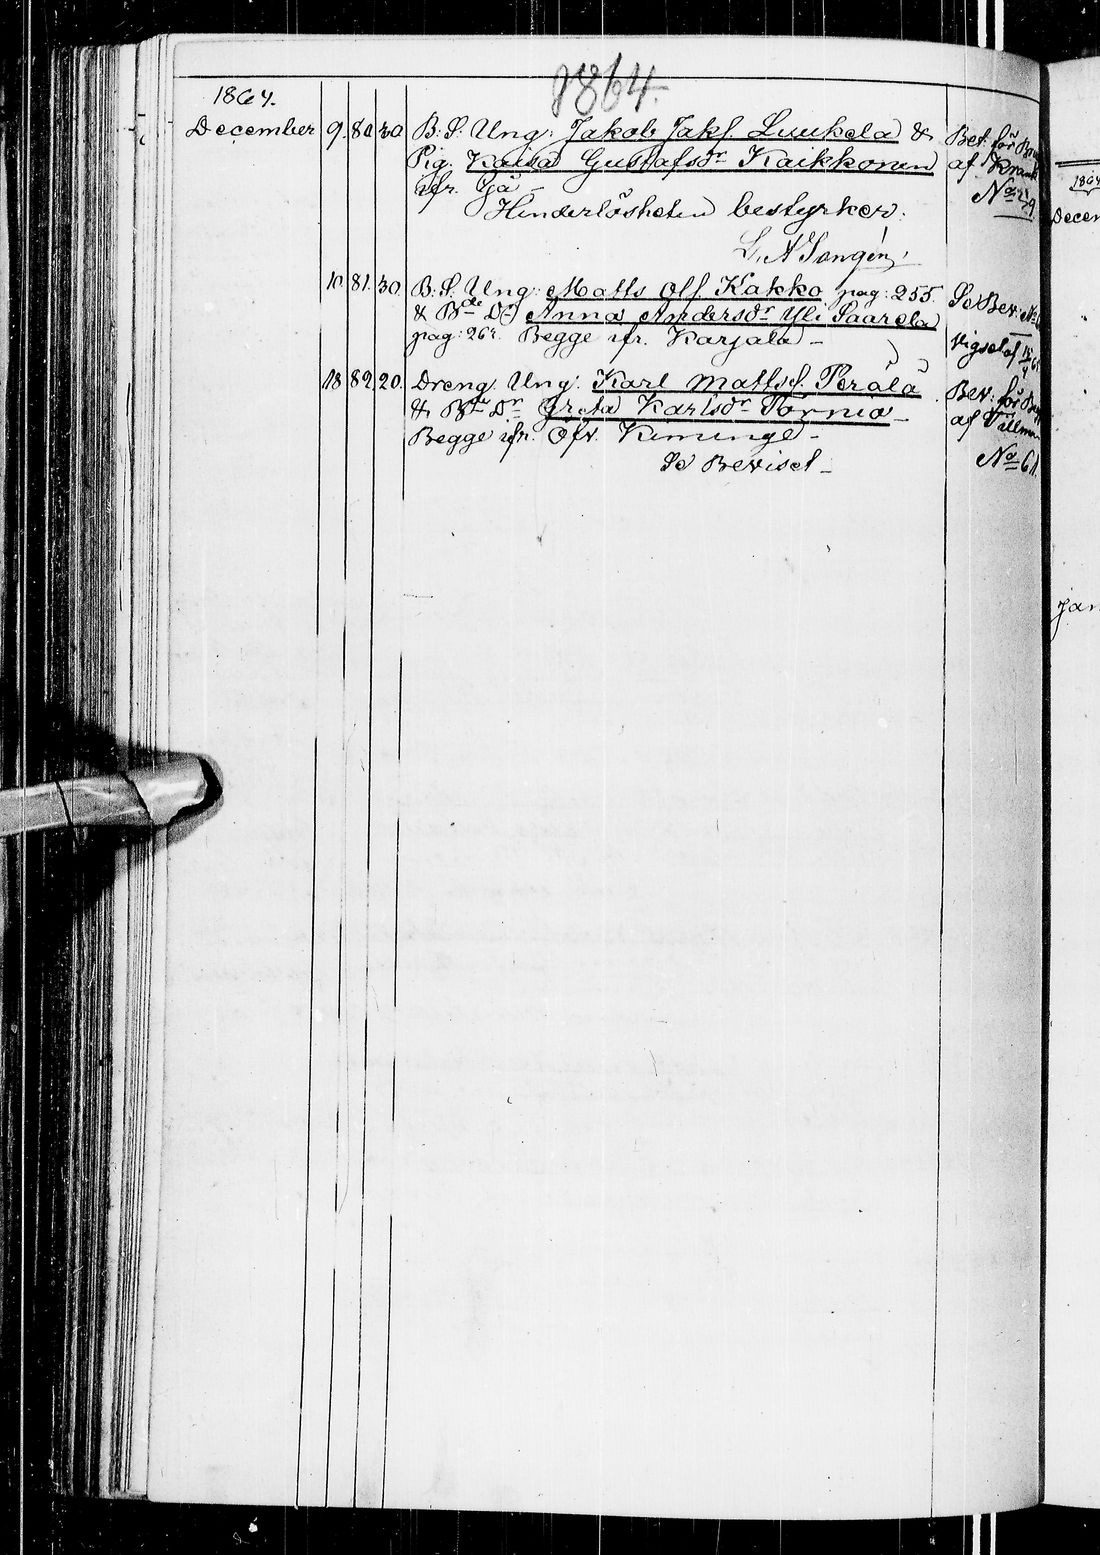 1864.
1864.
December 9. 80. 30. B. S. Ung: Jakob Jakf. Luukela &
Pig. Kaisa Gustafsdr Kaikkonen
ifr. Ijå -
Hinderlösheten bestyrker.
L. A Longén,
Bet. för
af
No
10 81. 30. B. S. Ung: Matts Olf Kakko pag: 255.
& Bde Dr Anna Andersdr Yli Saarela
pag: 267. Begge ifr. Karjala -
Se Bev:
18 82. 20. Dreng Ung. Karl Mattsf. Perälä
& Bde Dr Greta Karlsdr Törmä -
Begge ifr. Öfv. Kiminge -
Se Beviset -
Bev. för
af
No 61.
1864
Decem
Jan